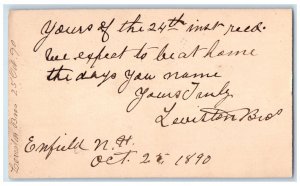 Yours of the 24th inst recd.
We expect to be at home
the days you name
Yours Truly
Leviston Bros
Enfield N.H.
Oct. 25, 1890
Leviston Bros 25 Oct. 90